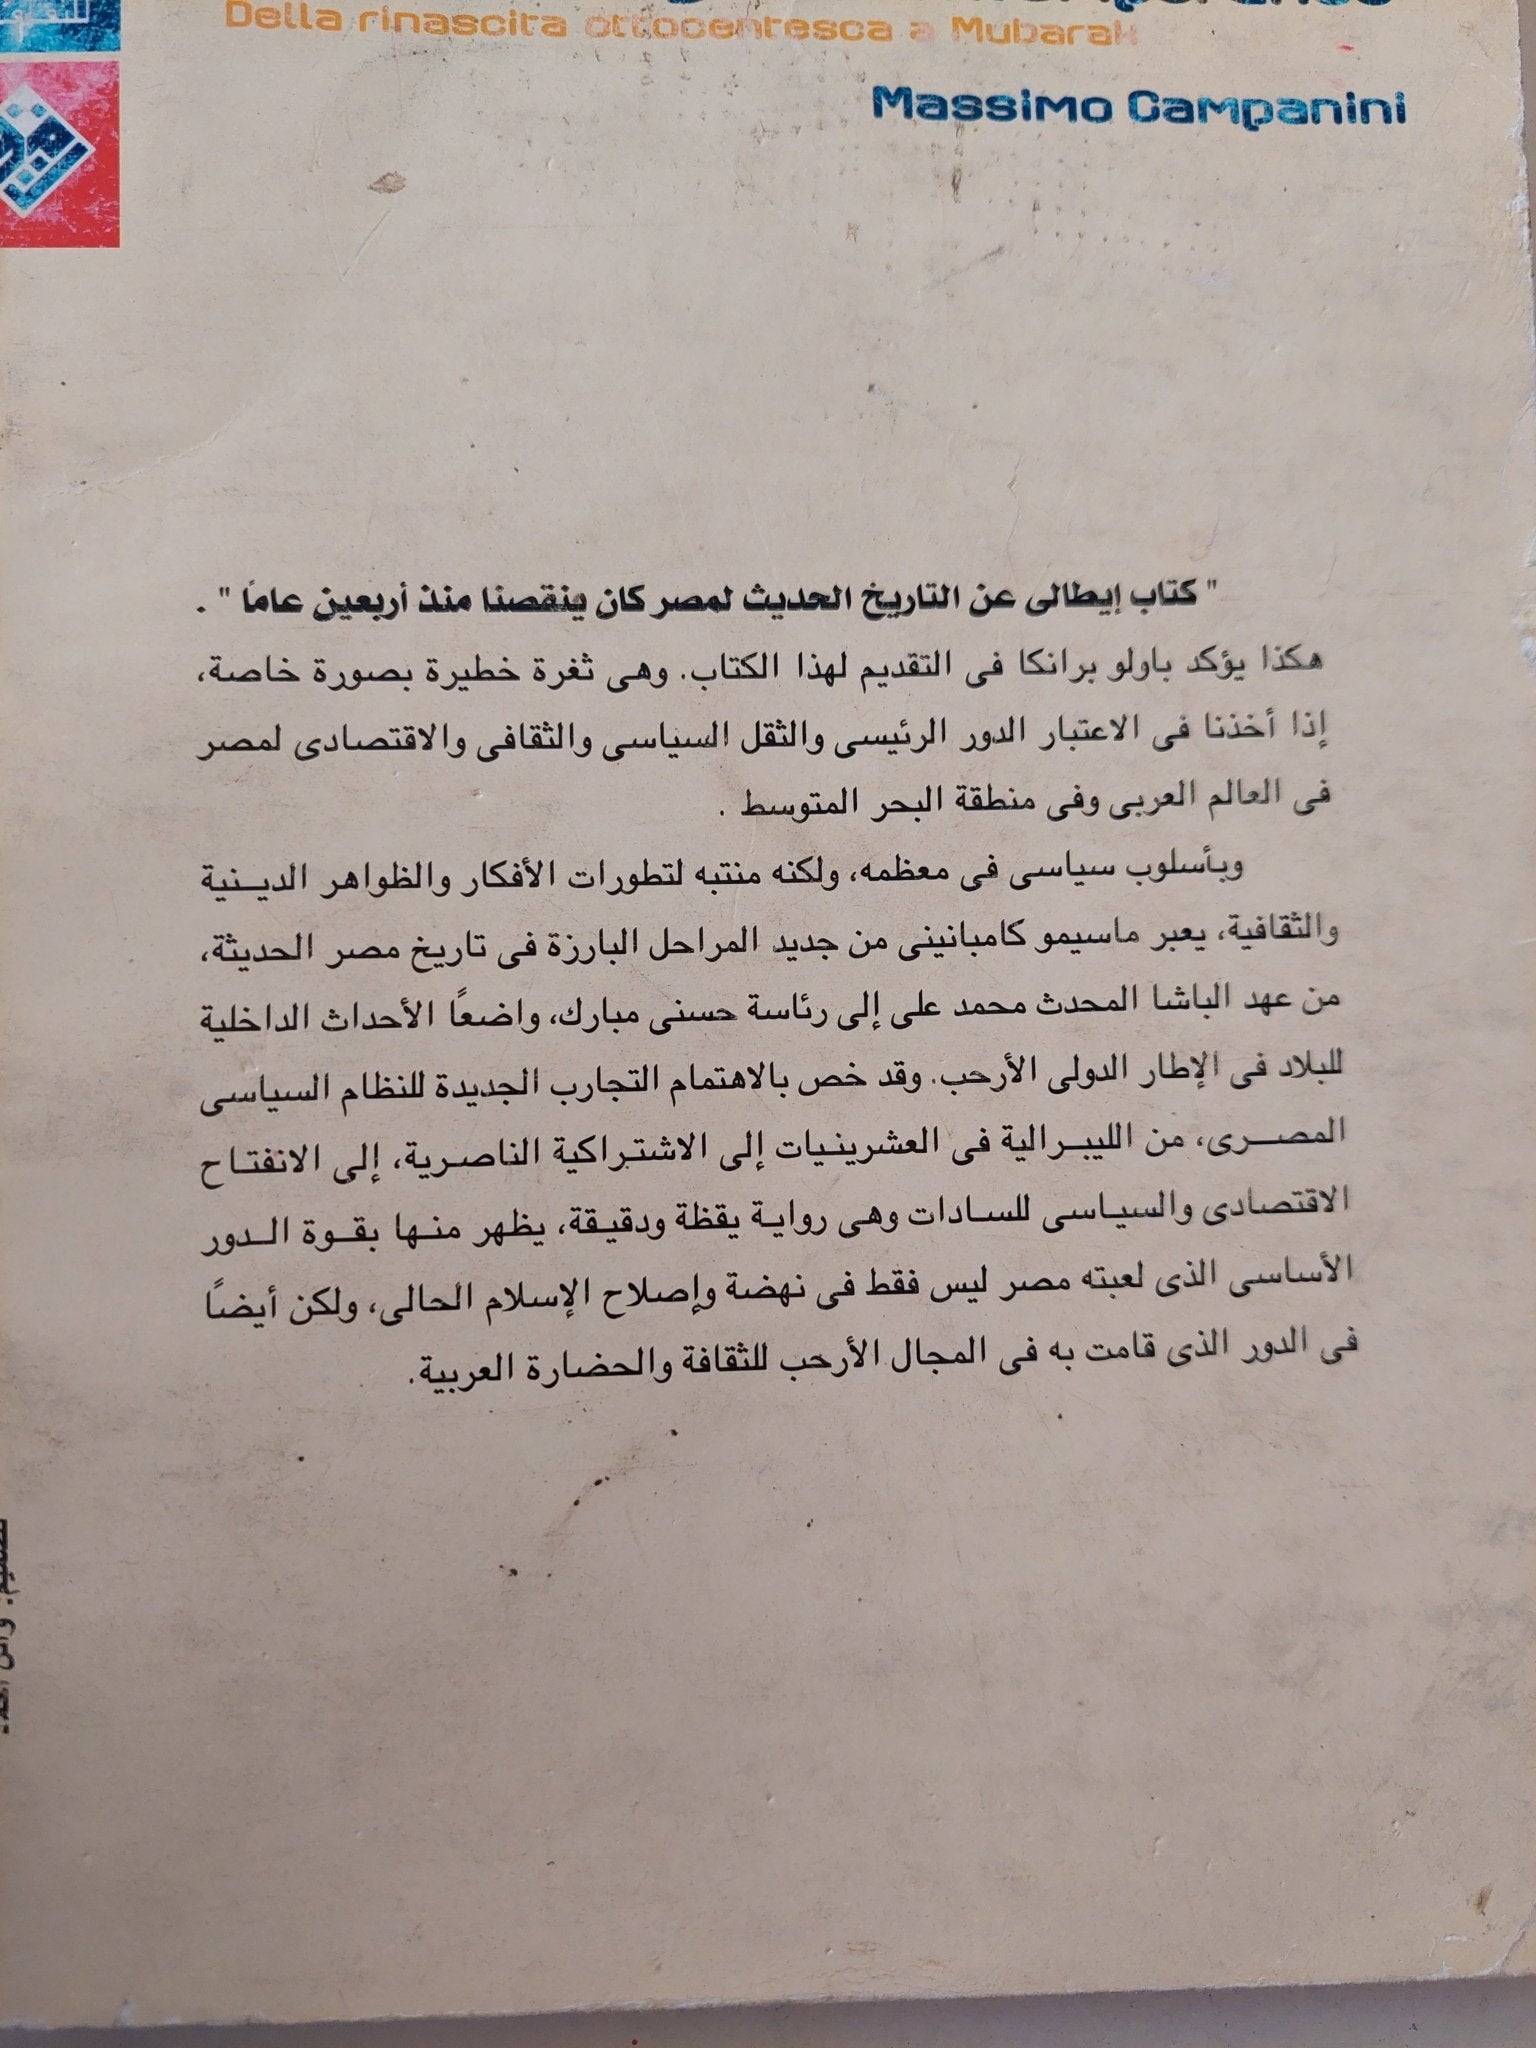 Della rinascita ottocentesca a Mubarak
Massimo Campanini
" كتاب إيطالى عن التاريخ الحديث لمصر كان ينقصنا منذ أربعين عامًا " .
هكذا يؤكد باولو برانكا فى التقديم لهذا الكتاب. وهى ثغرة خطيرة بصورة خاصة،
إذا أخذنا فى الاعتبار الدور الرئيسى والثقل السياسى والثقافى والاقتصادى لمصر
فى العالم العربى وفى منطقة البحر المتوسط .
وبأسلوب سياسى فى معظمه، ولكنه منتبه لتطورات الأفكار والظواهر الديـنية
والثقافية، يعبر ماسيمو كامبانينى من جديد المراحل البارزة فى تاريخ مصر الحديثة،
من عهد الباشا المحدث محمد على إلى رئاسة حسنى مبارك، واضعًا الأحداث الداخلية
للبلاد فى الإطار الدولى الأرحب. وقد خص بالاهتمام التجارب الجديدة للنظام السياسى
المصـرى، من الليبـرالية فى العشرينـيات إلى الاشتـراكية الناصـرية، إلى الانفتـاح
الاقتصادى والسيـاسى للسـادات وهى روايـة يقظة ودقيـقة، يظهر منـها بقـوة الـدور
الأساسى الذى لعبته مصر ليس فقط فى نهضة وإصلاح الإسلام الحالى، ولكن أيضًا
فى الدور الذى قامت به فى المجال الأرحب للثقافة والحضارة العربية.